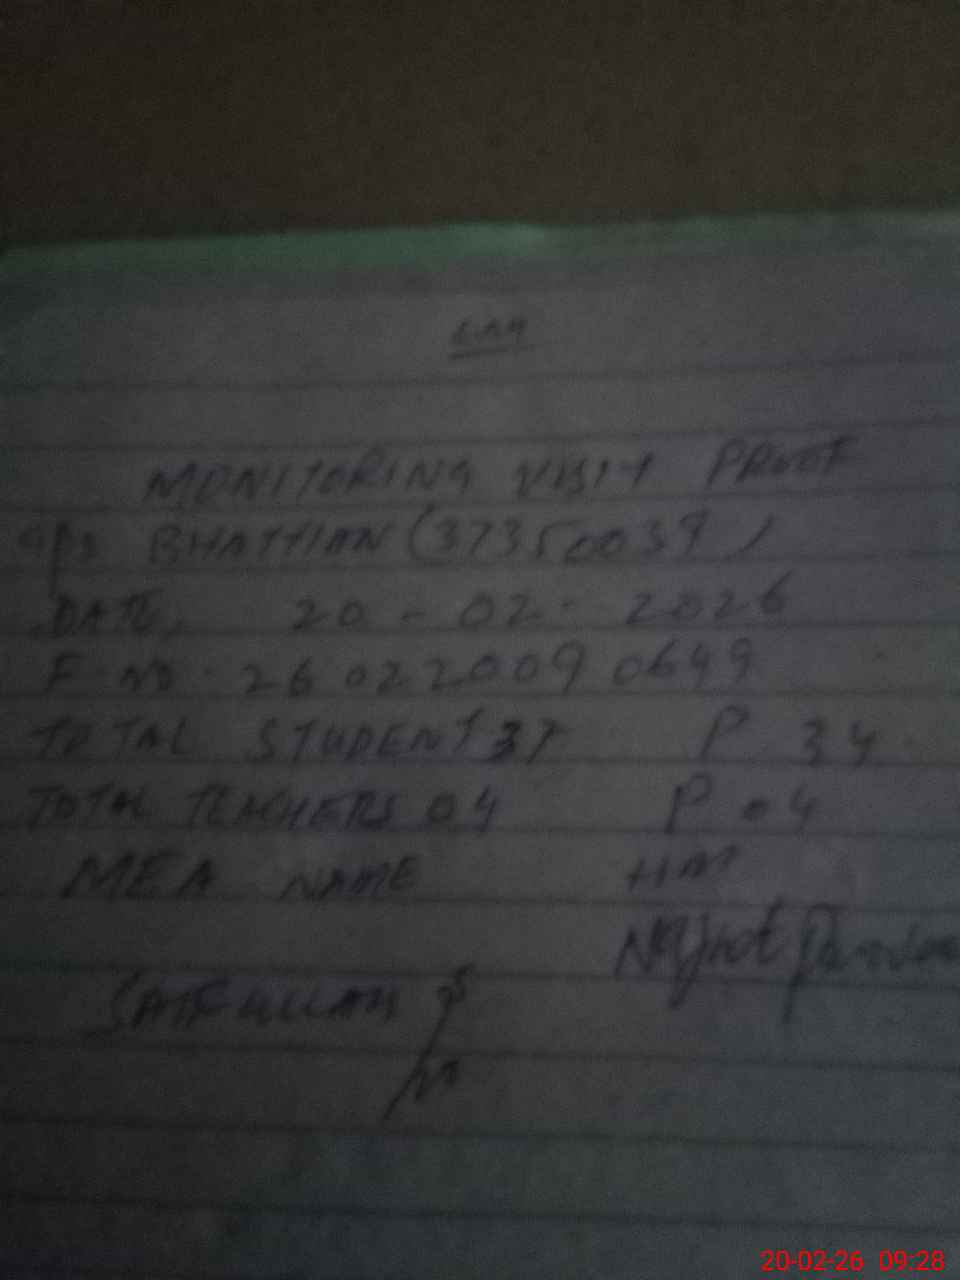 MONITORING VISIT PROOF
GPS BHATTIAN (37350039)
DATE, 20-02-2026
F-NO. 260220090649
TOTAL STUDENT 37 P 34
TOTAL TEACHERS 04 P 04
MEA NAME HM
SAIFULLAH
20-02-26 09:28